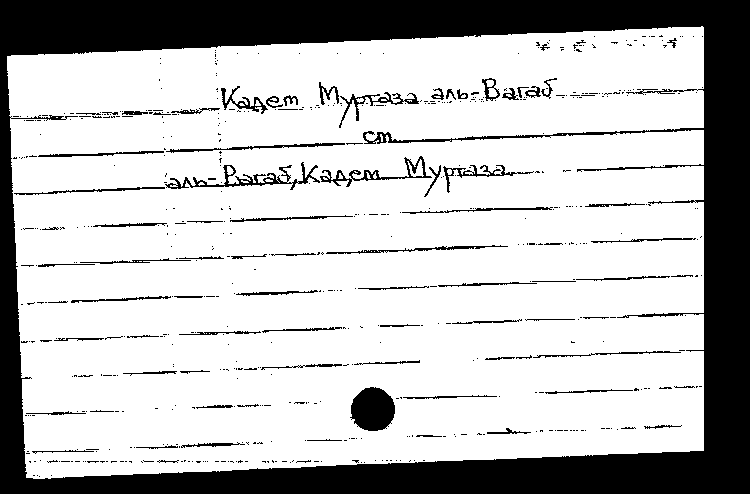 Кадет Муртаза аль-Вагаб
ст.
аль-Вагаб, Кадет Муртаза.